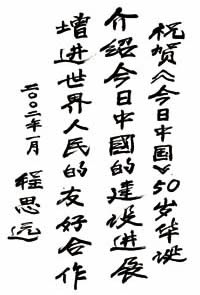 祝贺《今日中国》50岁华诞
介绍今日中國的建设进展
增进世界人民的友好合作
二〇〇二年一月
程思远